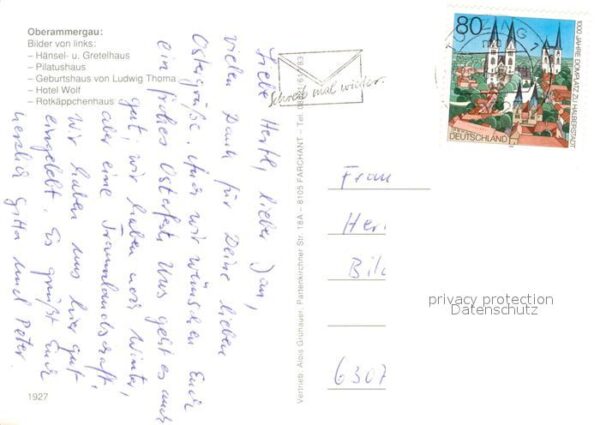 Oberammergau:
Bilder von links:
– Hänsel- u. Gretelhaus
– Pilatushaus
– Geburtshaus von Ludwig Thoma
– Hotel Wolf
– Rotkäppchenhaus
Liebe Hertl, lieber Jan,
vielen Dank für Deine lieben
Ostergrüße. Auch wir wünschen Euch
ein frohes Osterfest. Uns geht es auch
gut, wir haben noch Winter,
aber eine Traumlandschaft,
wir haben uns hier gut
eingelebt. Es grüßt Euch
herzlich Gitta und Peter.
1927
Vertrieb: Alois Grühauer, Partenkirchner Str. 18A – 8105 FARCHANT – Tel.
Schreib mal wieder.
80
1000 JAHRE DOMPLATZ ZU HALBERSTADT
DEUTSCHLAND
Frau
Her
Bil
6307
privacy protection
Datenschutz